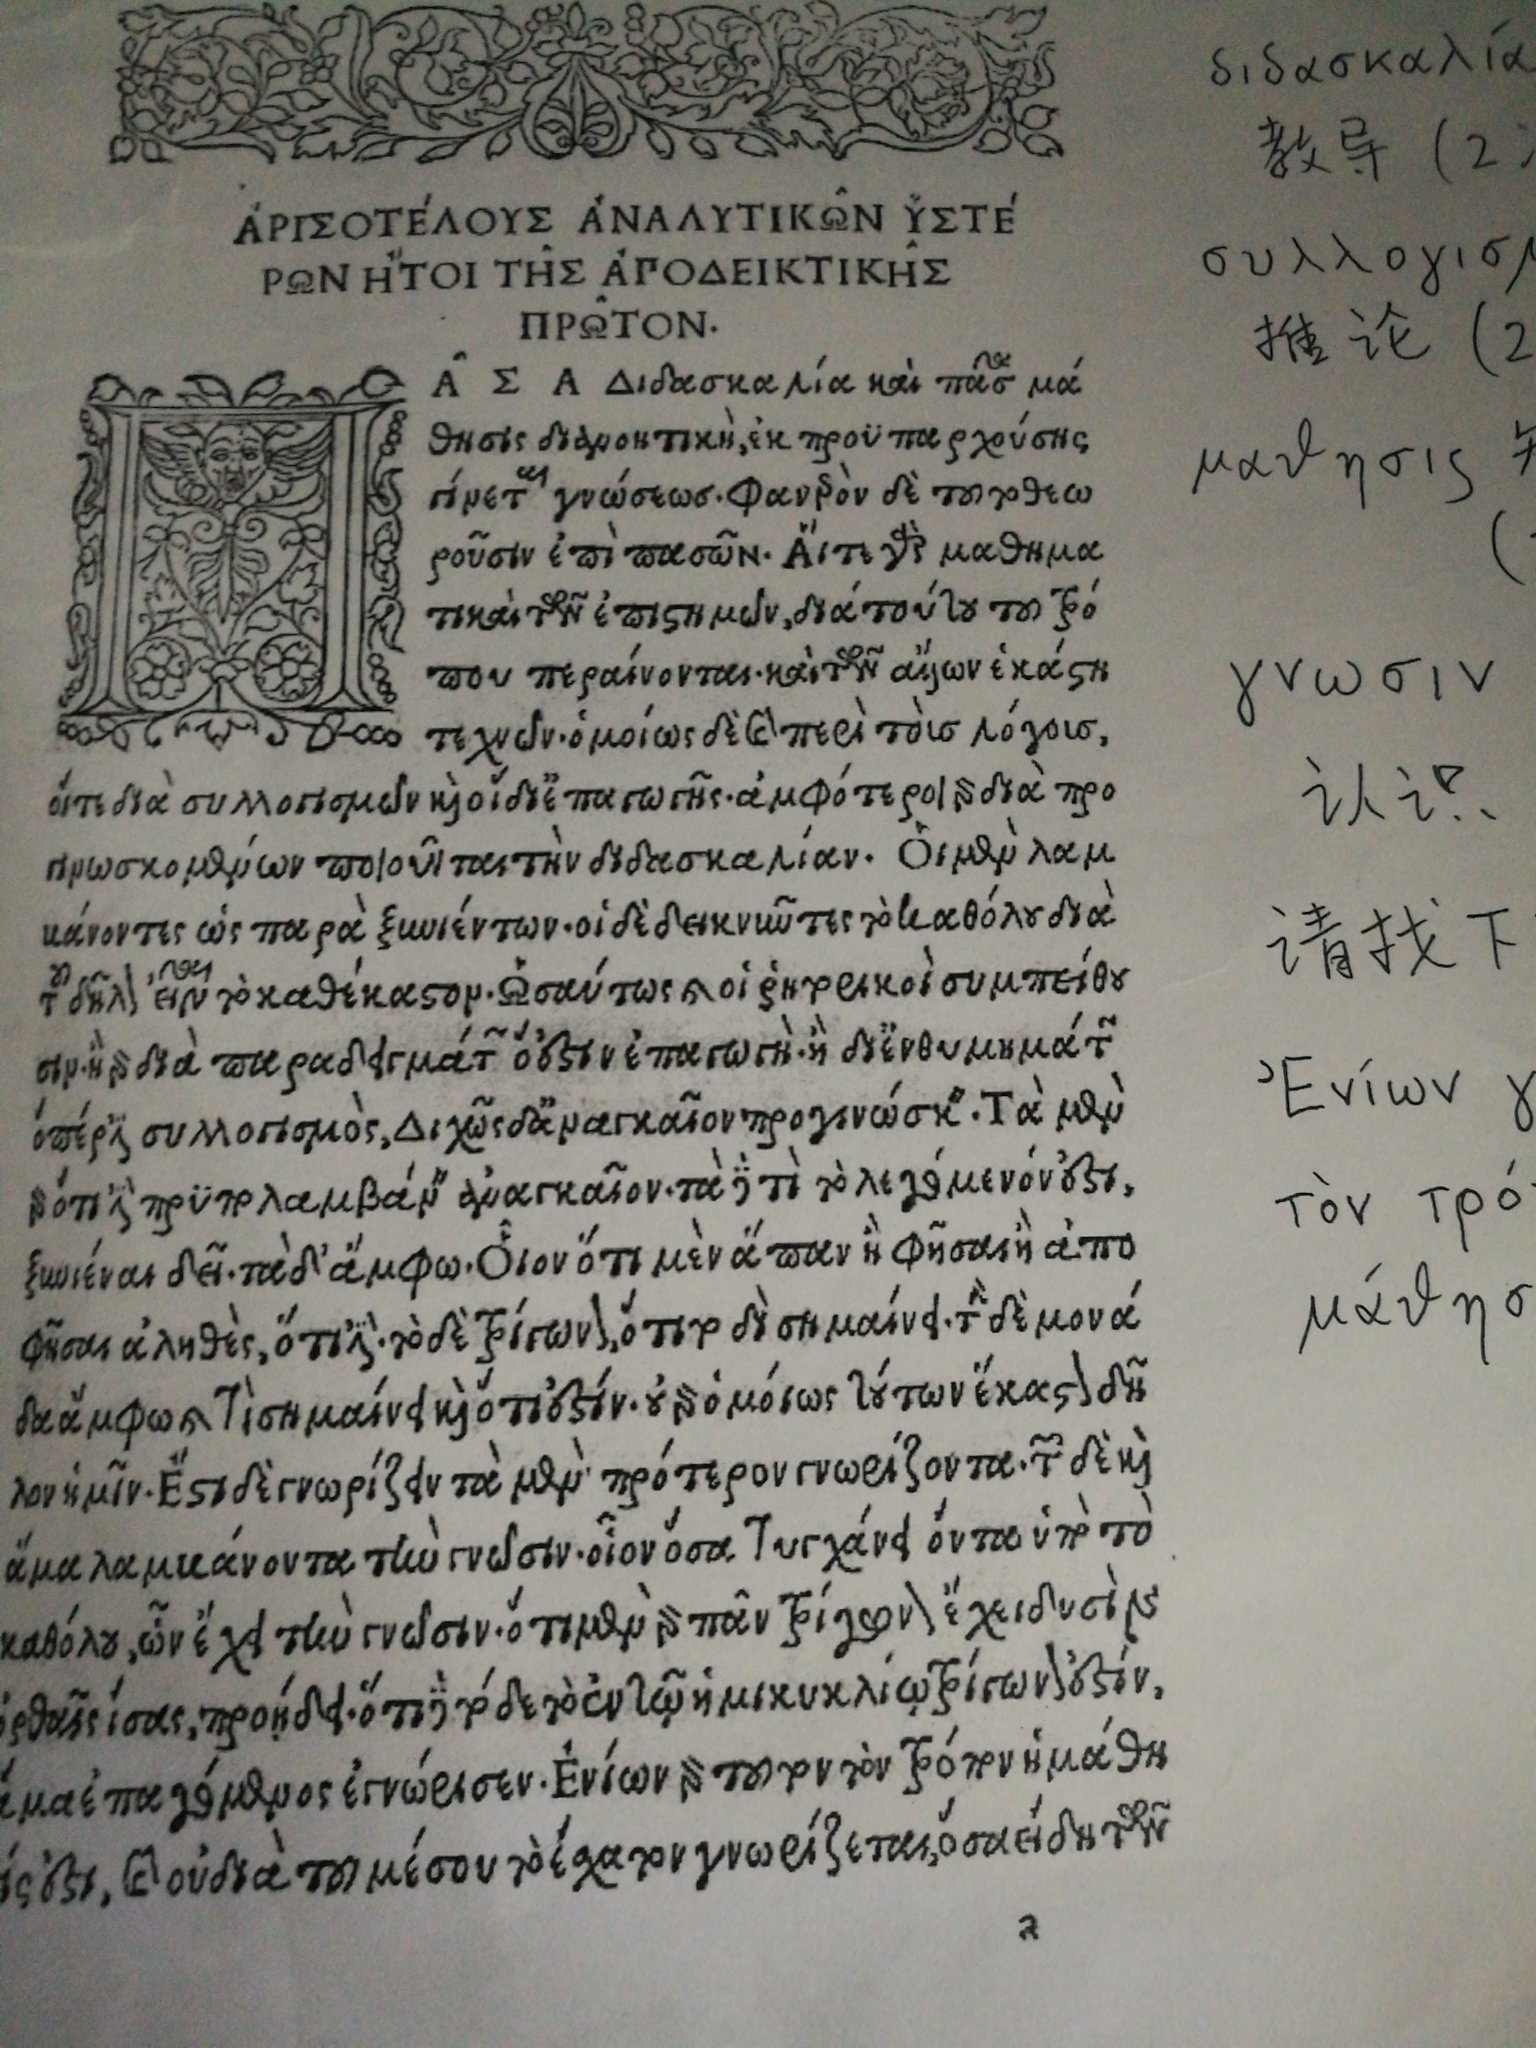 ἈΡΙΣΟΤΈΛΟΥΣ ἈΝΑΛΥΤΙΚΩ͂Ν ὙΣΤΈ
ΡΩΝ ἬΤΟΙ ΤΗ͂Σ ἈΠΟΔΕΙΚΤΙΚΗ͂Σ
ΠΡΩ͂ΤΟΝ.
Π Α͂ Σ Α Διδασκαλία καὶ πᾶσα μά
θησις διανοητικὴ, ἐκ προϋπαρχούσης
γίνεται γνώσεως. Φανερὸν δὲ τοῦτο θεω
ροῦσιν ἐπὶ πασῶν. Ἅιτε γὰρ μαθημα
τικαὶ τῶν ἐπιστημῶν, διὰ τούτου τοῦ τρό
που περαίνονται. καὶ τῶν ἄλλων ἑκάστη
τεχνῶν. ὁμοίως δὲ καὶ περὶ τοὺσ λόγουσ,
οἵτε διὰ συλλογισμῶν καὶ οἱ δι' ἐπαγωγῆς. ἀμφότεροι γὰρ διὰ προ
γινωσκομένων ποιοῦνται τὴν διδασκαλίαν. Ὁι μὲν λαμ
βάνοντες ὡς παρὰ ξυνιέντων. οἱ δὲ δεικνῦντες τὸ καθόλου διὰ
τοῦ δῆλον εἶναι τὸ καθέκαστον. Ὡσαύτως καὶ οἱ ῥητορικοὶ συμπείθου
σιν. ἢ γὰρ διὰ παραδειγμάτων ὅ ἐστιν ἐπαγωγὴ. ἢ δι' ἐνθυμημάτων
ὅπέρ ἐστι συλλογισμὸς, Διχῶς δ' ἀναγκαῖον προγινώσκειν. Τὰ μὲν
γὰρ ὅτι ἐστι προϋπολαμβάνειν ἀναγκαῖον. τὰ δὲ τὶ τὸ λεγόμενόν ἐστι,
ξυνιέναι δεῖ. τὰ δ' ἄμφω. Οἷον ὅτι μὲν ἅπαν ἢ φῆσαι ἢ ἀπο
φῆσαι ἀληθὲς, ὅτι ἐστι. τὸ δὲ τρίγωνον, ὅτι τοδὶ σημαίνει. τὴν δὲ μονά
δα ἄμφω καὶ τὶ σημαίνει καὶ ὅτι ἐστίν. οὐ γὰρ ὁμοίως τούτων ἕκαστον δῆ
λον ἡμῖν. Ἔστι δὲ γνωρίζειν τὰ μὲν πρότερον γνωρίζοντα. τῶν δὲ καὶ
ἅμα λαμβάνοντα τὴν γνῶσιν. οἷον ὅσα τυγχάνει ὄντα ὑπὸ τὸ
καθόλου, ὧν ἔχει τὴν γνῶσιν. ὅτι μὲν γὰρ πᾶν τρίγωνον ἔχει δυσὶν
ὀρθαῖς ἴσας, προῄδει. ὅτι δὲ τόδε τὸ ἐν τῷ ἡμικυκλίῳ τρίγωνόν ἐστιν,
ἅμα ἐπαγόμενος ἐγνώρισεν. Ἐνίων γὰρ τοῦτον τὸν τρόπον ἡ μάθη
σίς ἐστι, καὶ οὐ διὰ τοῦ μέσου τὸ ἔσχατον γνωρίζεται, ὅσα εἴδη τῶν
a
διδασκαλία
教导 (2
συλλογισμ
推论 (2
μαθησις
γνωσιν
认识
请找下
Ἐνίων γ
τὸν τρό
μάθησ